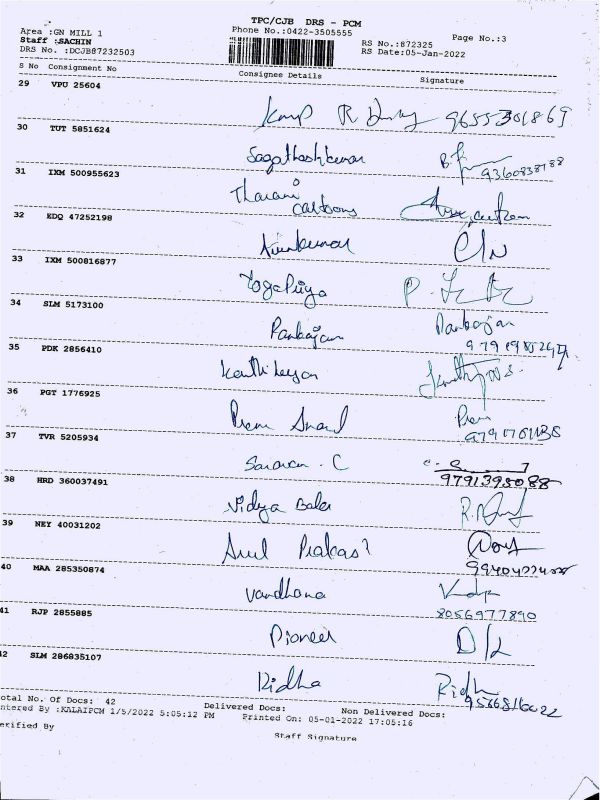 TPC/CJB DRS - PCM
Area :GN MILL 1 Phone No.:0422-3505555 Page No.:3
Staff :SACHIN RS No.:872325
DRS No. :DCJB87232503 RS Date:05-Jan-2022
S No Consignment No Consignee Details Signature
29 VPU 25604
9655301869
30 TUT 5851624
9360838788
31 IXM 500955623
Tharani cartoons
32 EDQ 47252198
Arunkumar
33 IXM 500816877
Yoga Priya
34 SLM 5173100
Pankajam Pankajam
35 PDK 2856410
Karthikeyan
36 PGT 1776925
Prem Anand Prem
37 TVR 5205934
Saravan . C
9791395088
38 HRD 360037491
Vidya Bala
39 NEY 40031202
Arul Prakash
40 MAA 285350874
Vandhana
8056977890
41 RJP 2855885
Pioneer
42 SLM 286835107
Ridha Ridha
9566816022
Total No. Of Docs: 42 Delivered Docs: Non Delivered Docs:
ntered By :KALAIPCM 1/5/2022 5:05:12 PM Printed On: 05-01-2022 17:05:16
erified By
Staff Signature